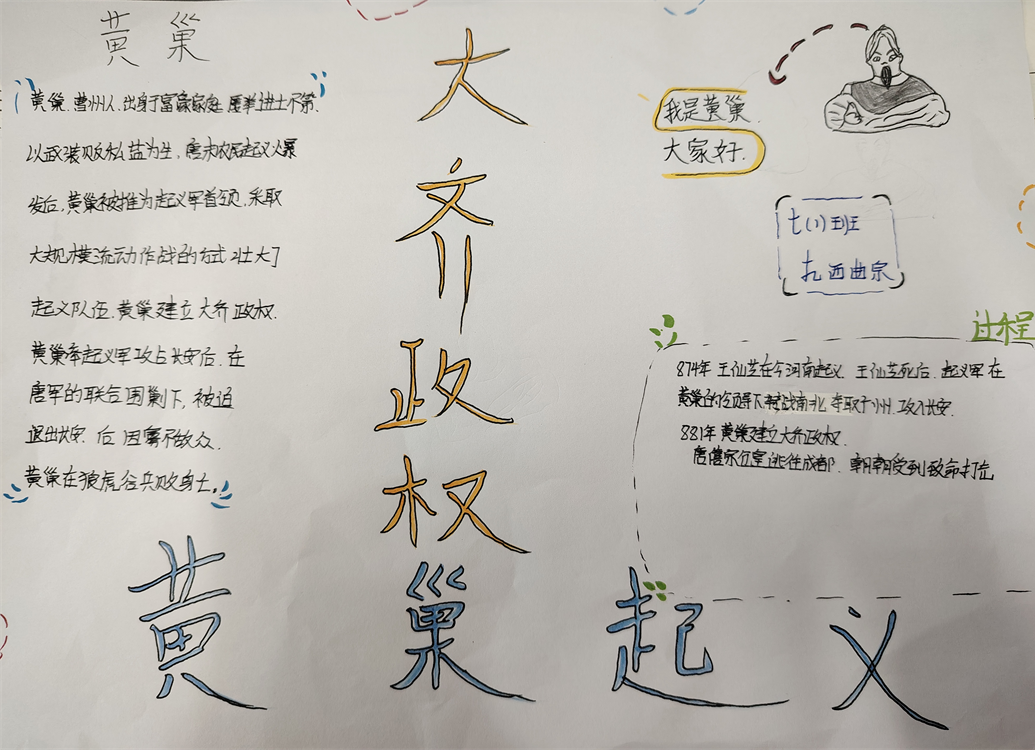 黄巢
黄巢,曹州人,出身于富豪家庭,屡举进士不第.
以武装贩私盐为生,唐末农民起义爆
发后,黄巢被推为起义军首领,采取
大规模流动作战的方式,壮大了
起义队伍,黄巢建立大齐政权.
黄巢率起义军攻占长安后,在
唐军的联合围剿下,被迫
退出长安.后因寡不敌众,
黄巢在狼虎谷兵败身亡。
大齐政权
黄巢起义
我是黄巢.
大家好.
七(1)班
扎西曲宗
过程
874年 王仙芝在今河南起义.王仙芝死后,起义军在
黄巢的领导下转战南北,夺取广州,攻入长安.
881年黄巢建立大齐政权.
唐僖宗仓皇逃往成都.朝受到致命打击